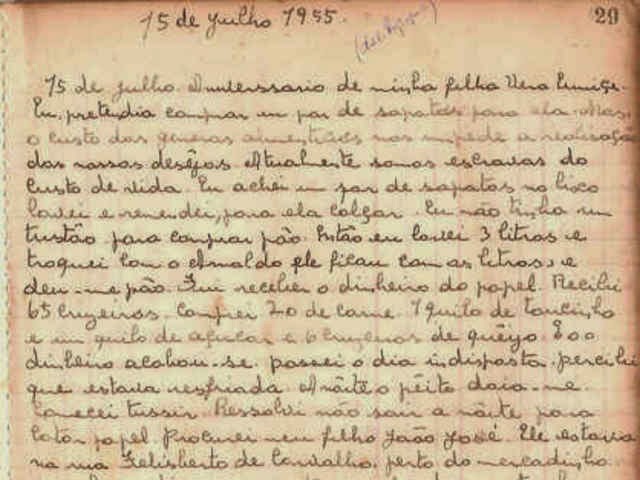 15 de Julho 1955.
(datilografar)
29
15 de julho. Aniverssario de minha filha Vera Eunice.
Eu pretendia comprar um par de sapatos para ela. Mas,
o custo dos generos alimenticios nos impede a realisação
dos nossos desêjos. Atualmente somos escravos do
Custo de vida. Eu achei um par de sapatos no lixo
lavei e remendei, para ela calçar. Eu não tinha um
tustão para comprar pão. Então eu lavei 3 litros e
troquei com o Arnaldo ele ficou com os litros, e
deu-me pão. Fui receber o dinheiro do papel. Recibi
65 cruzeiros. Comprei 20 de carne. 1 quilo de toucinho
e um quilo de açucar e 6 cruzeiros de queijo. E o
dinheiro acabou-se. passei o dia indisposta. percibi
que estava resfriada. A nôite o pêito doia-me
Comecei tussir. Ressolvi não sair a nôite para
Catar papel. Procurei meu filho João José. Ele estava
na rua Felisberto de Carvalho, perto do mercadinho.